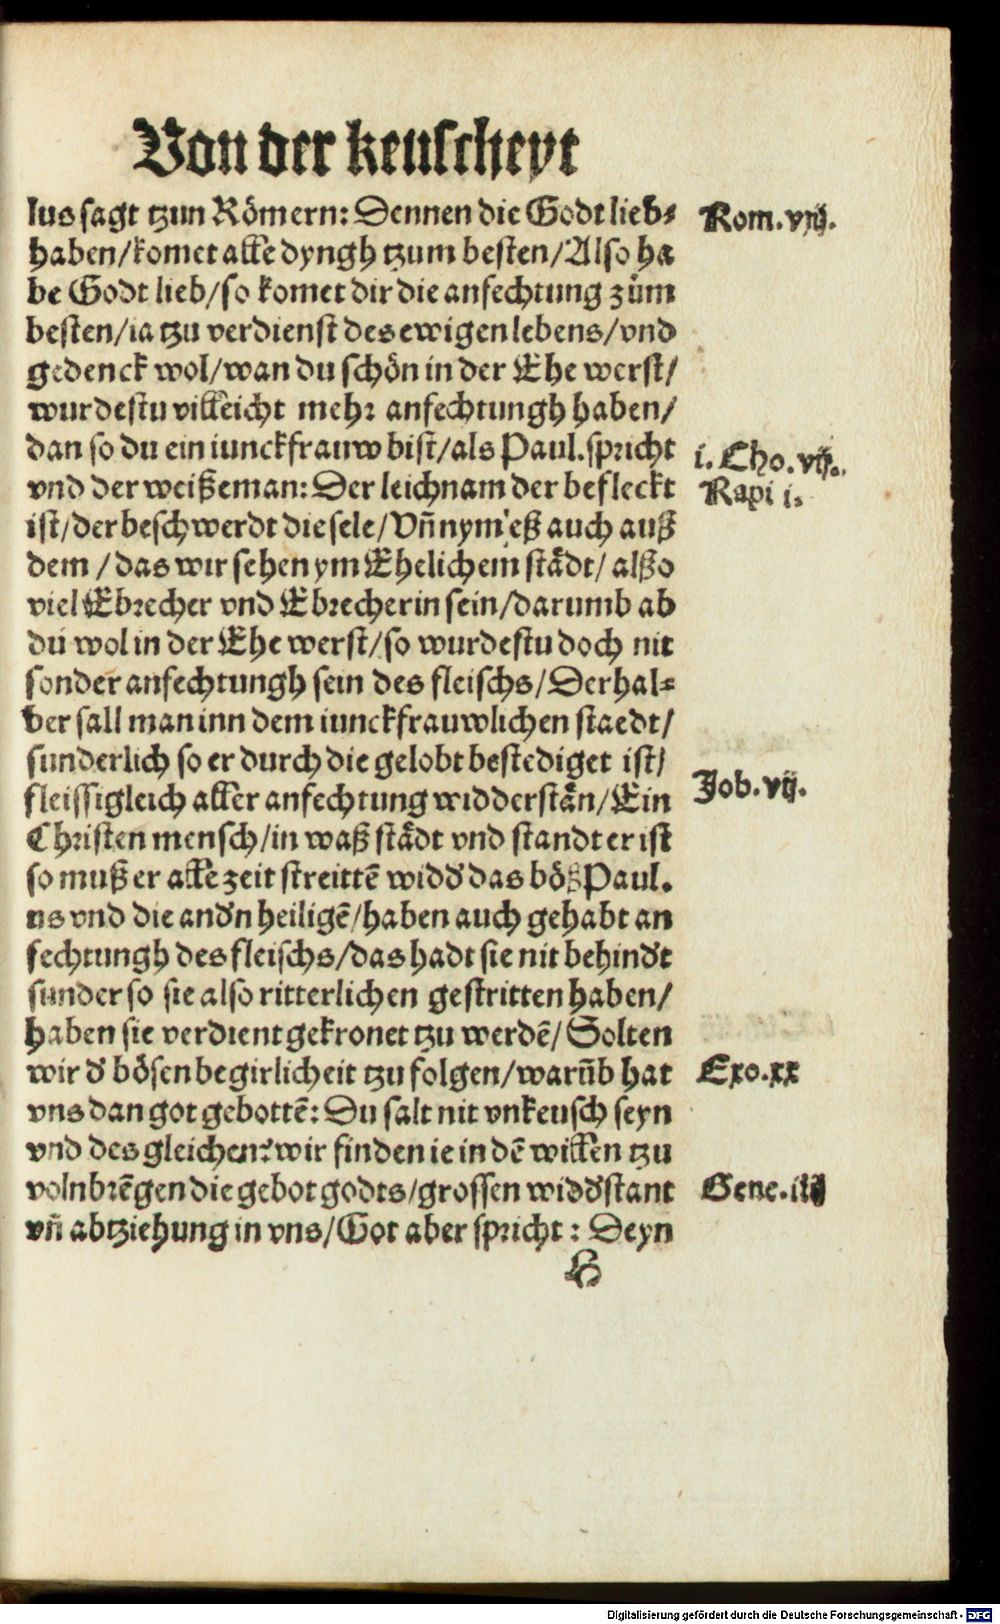 Von der keuscheyt
lus sagt tzun Römern: Dennen die Godt lieb⸗
haben/komet alle dyngh tzum besten/Also ha
be Godt lieb/so komet dir die anfechtung zům
besten/ia tzu verdienst des ewigen lebens/vnd
gedenck wol/wan du schön in der Ehe werst/
wurdestu villeicht mehr anfechtungh haben/
dan so du ein iunckfrauw bist/als Paul.spricht
vnd der weißeman: Der leichnam der befleckt
ist/der beschwerdt die sele/Vñ nym eß auch auß
dem/das wir sehen ym Ehelichem städt/alßo
viel Ebrecher vnd Ebrecherin sein/darumb ab
du wol in der Ehe werst/so wurdestu doch nit
sonder anfechtungh sein des fleischs/Derhal⸗
ber sall man inn dem iunckfrauwlichen staedt/
sunderlich so er durch die gelobt bestediget ist/
fleissigleich aller anfechtung widderstän/Ein
Christen mensch/in waß städt vnd standt er ist
so muß er alle zeit streittē widd' das böß Paul.
us vnd die and'n heiligē/haben auch gehabt an
fechtungh des fleischs/das hadt sie nit behind't
sunder so sie also ritterlichen gestritten haben/
haben sie verdient gekronet tzu werdē/Solten
wir d' bösen begirlicheit tzu folgen/warūb hat
vns dan got gebottē: Du salt nit vnkeusch seyn
vnd des gleichen? wir finden ie in dē willen tzu
volnbrēgen die gebot godts/grossen widd'stant
vñ abtziehung in vns/Got aber spricht: Deyn
Rom.viij.
i. Cho.vij.
Rapi i.
Job.vij.
Exo.xx
Gene.iiij
Digitalisierung gefördert durch die Deutsche Forschungsgemeinschaft - DFG